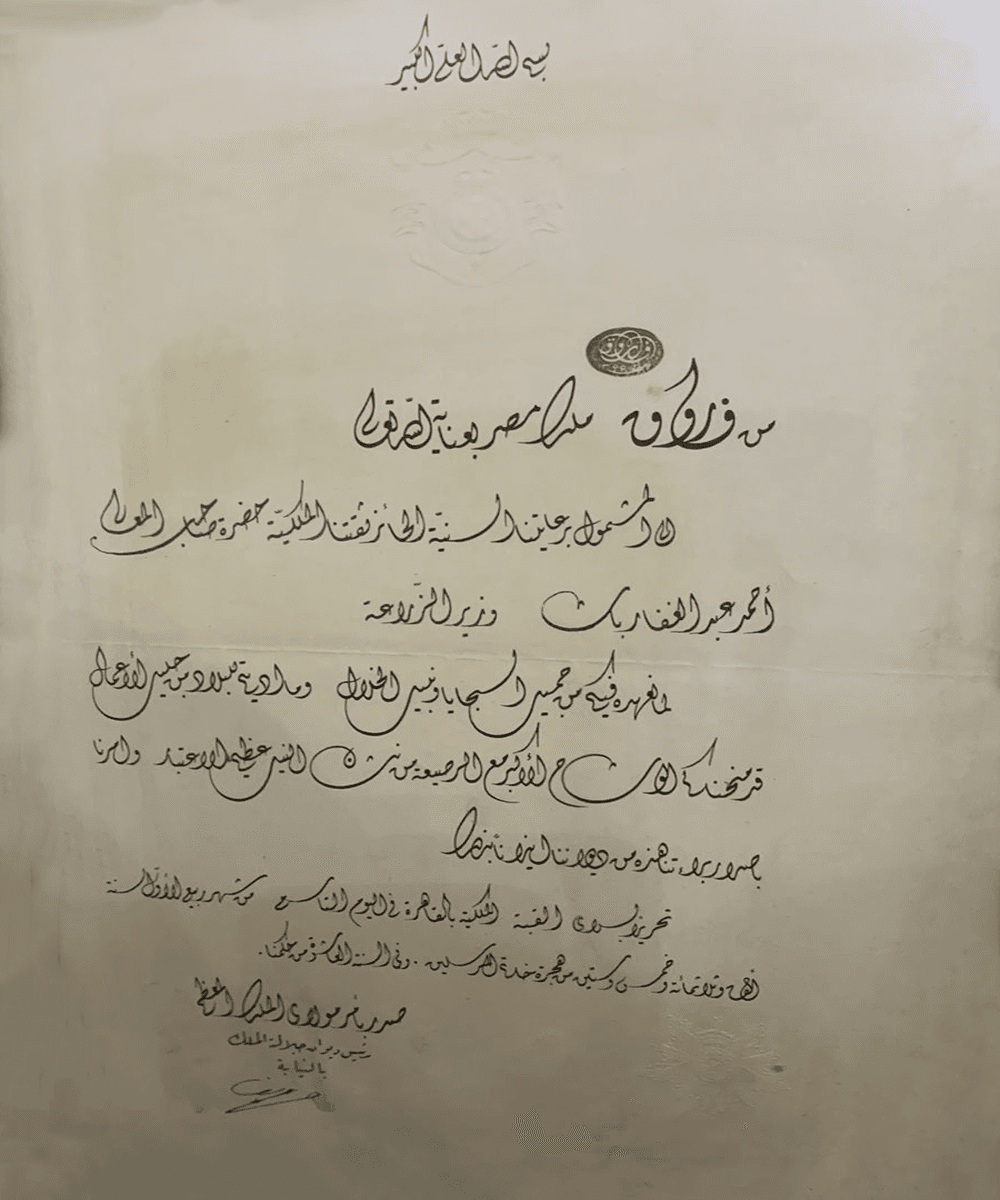 بسم الله العلي الكبير
فاروق
من فاروق ملك مصر بعناية الله تعالى
إلى المشمول برعايتنا السنية الحائز ثقتنا الملكية حضرة صاحب المعالى
أحمد عبد الغفار باشا وزير الزراعة
لما نعهده فيكم من حميد السجايا ونبيل الخلال وما أديتم للبلاد من جليل الأعمال
قد منحناكم الوشاح الأكبر مع الرصيعة من نشان النيل عظيم الاعتبار وأمرنا
بإصدار براءتنا هذه من ديواننا إيذانا بذلك
تحريرا بسراى القبة الملكية بالقاهرة فى اليوم التاسع من شهر ربيع الأول لسنة
ألف وثلاثمائة وخمس وستين من هجرة خاتم المرسلين . وفى السنة العاشرة من حكمنا .
صدر بأمر مولاى الملك المعظم
رئيس ديوان جلالة الملك
بالنيابة